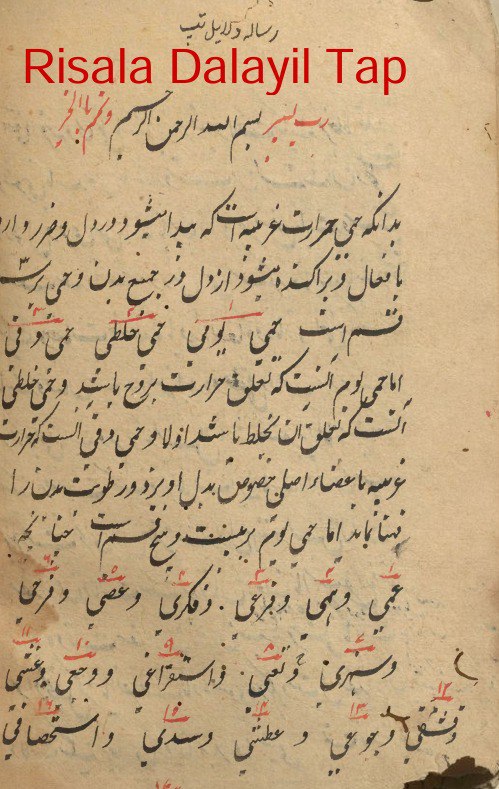 رساله دلایل تب
Risala Dalayil Tap
رب یسر بسم الله الرحمن الرحیم وتمم بالخیر
بدانکه حمی حرارت غریبه است که پیدا میشود در دل و ضرر دارد
بافعال و پراکنده میشود از دل در جمیع بدن و حمی بر سه ۳
قسم است حمی یومی حمی خلطی حمی دقی
اما حمی یوم آنست که تعلق حرارت بروح باشد و حمی خلطی
آنست که تعلق آن بخلط باشد اولا و حمی دقی آنست که حرارت
غریبه باعضاء اصلی خصوص بدل اویزد و رطوبت بدن را
فنا نماید اما حمی یوم بر بیست و پنج قسم است چنانچه
۱ ۲ ۳ ۴ ۵ ۶
غمی وهمی و فزعی و فکری و غضبی و فرحی
۷ ۸ ۹ ۱۰ ۱۱
و سهری و تعبی و استفراغی و وجعی و غشی
۱۲ ۱۳ ۱۴ ۱۵ ۱۶
و قشفی و جوعی و عطشی و سدی و استحصافی